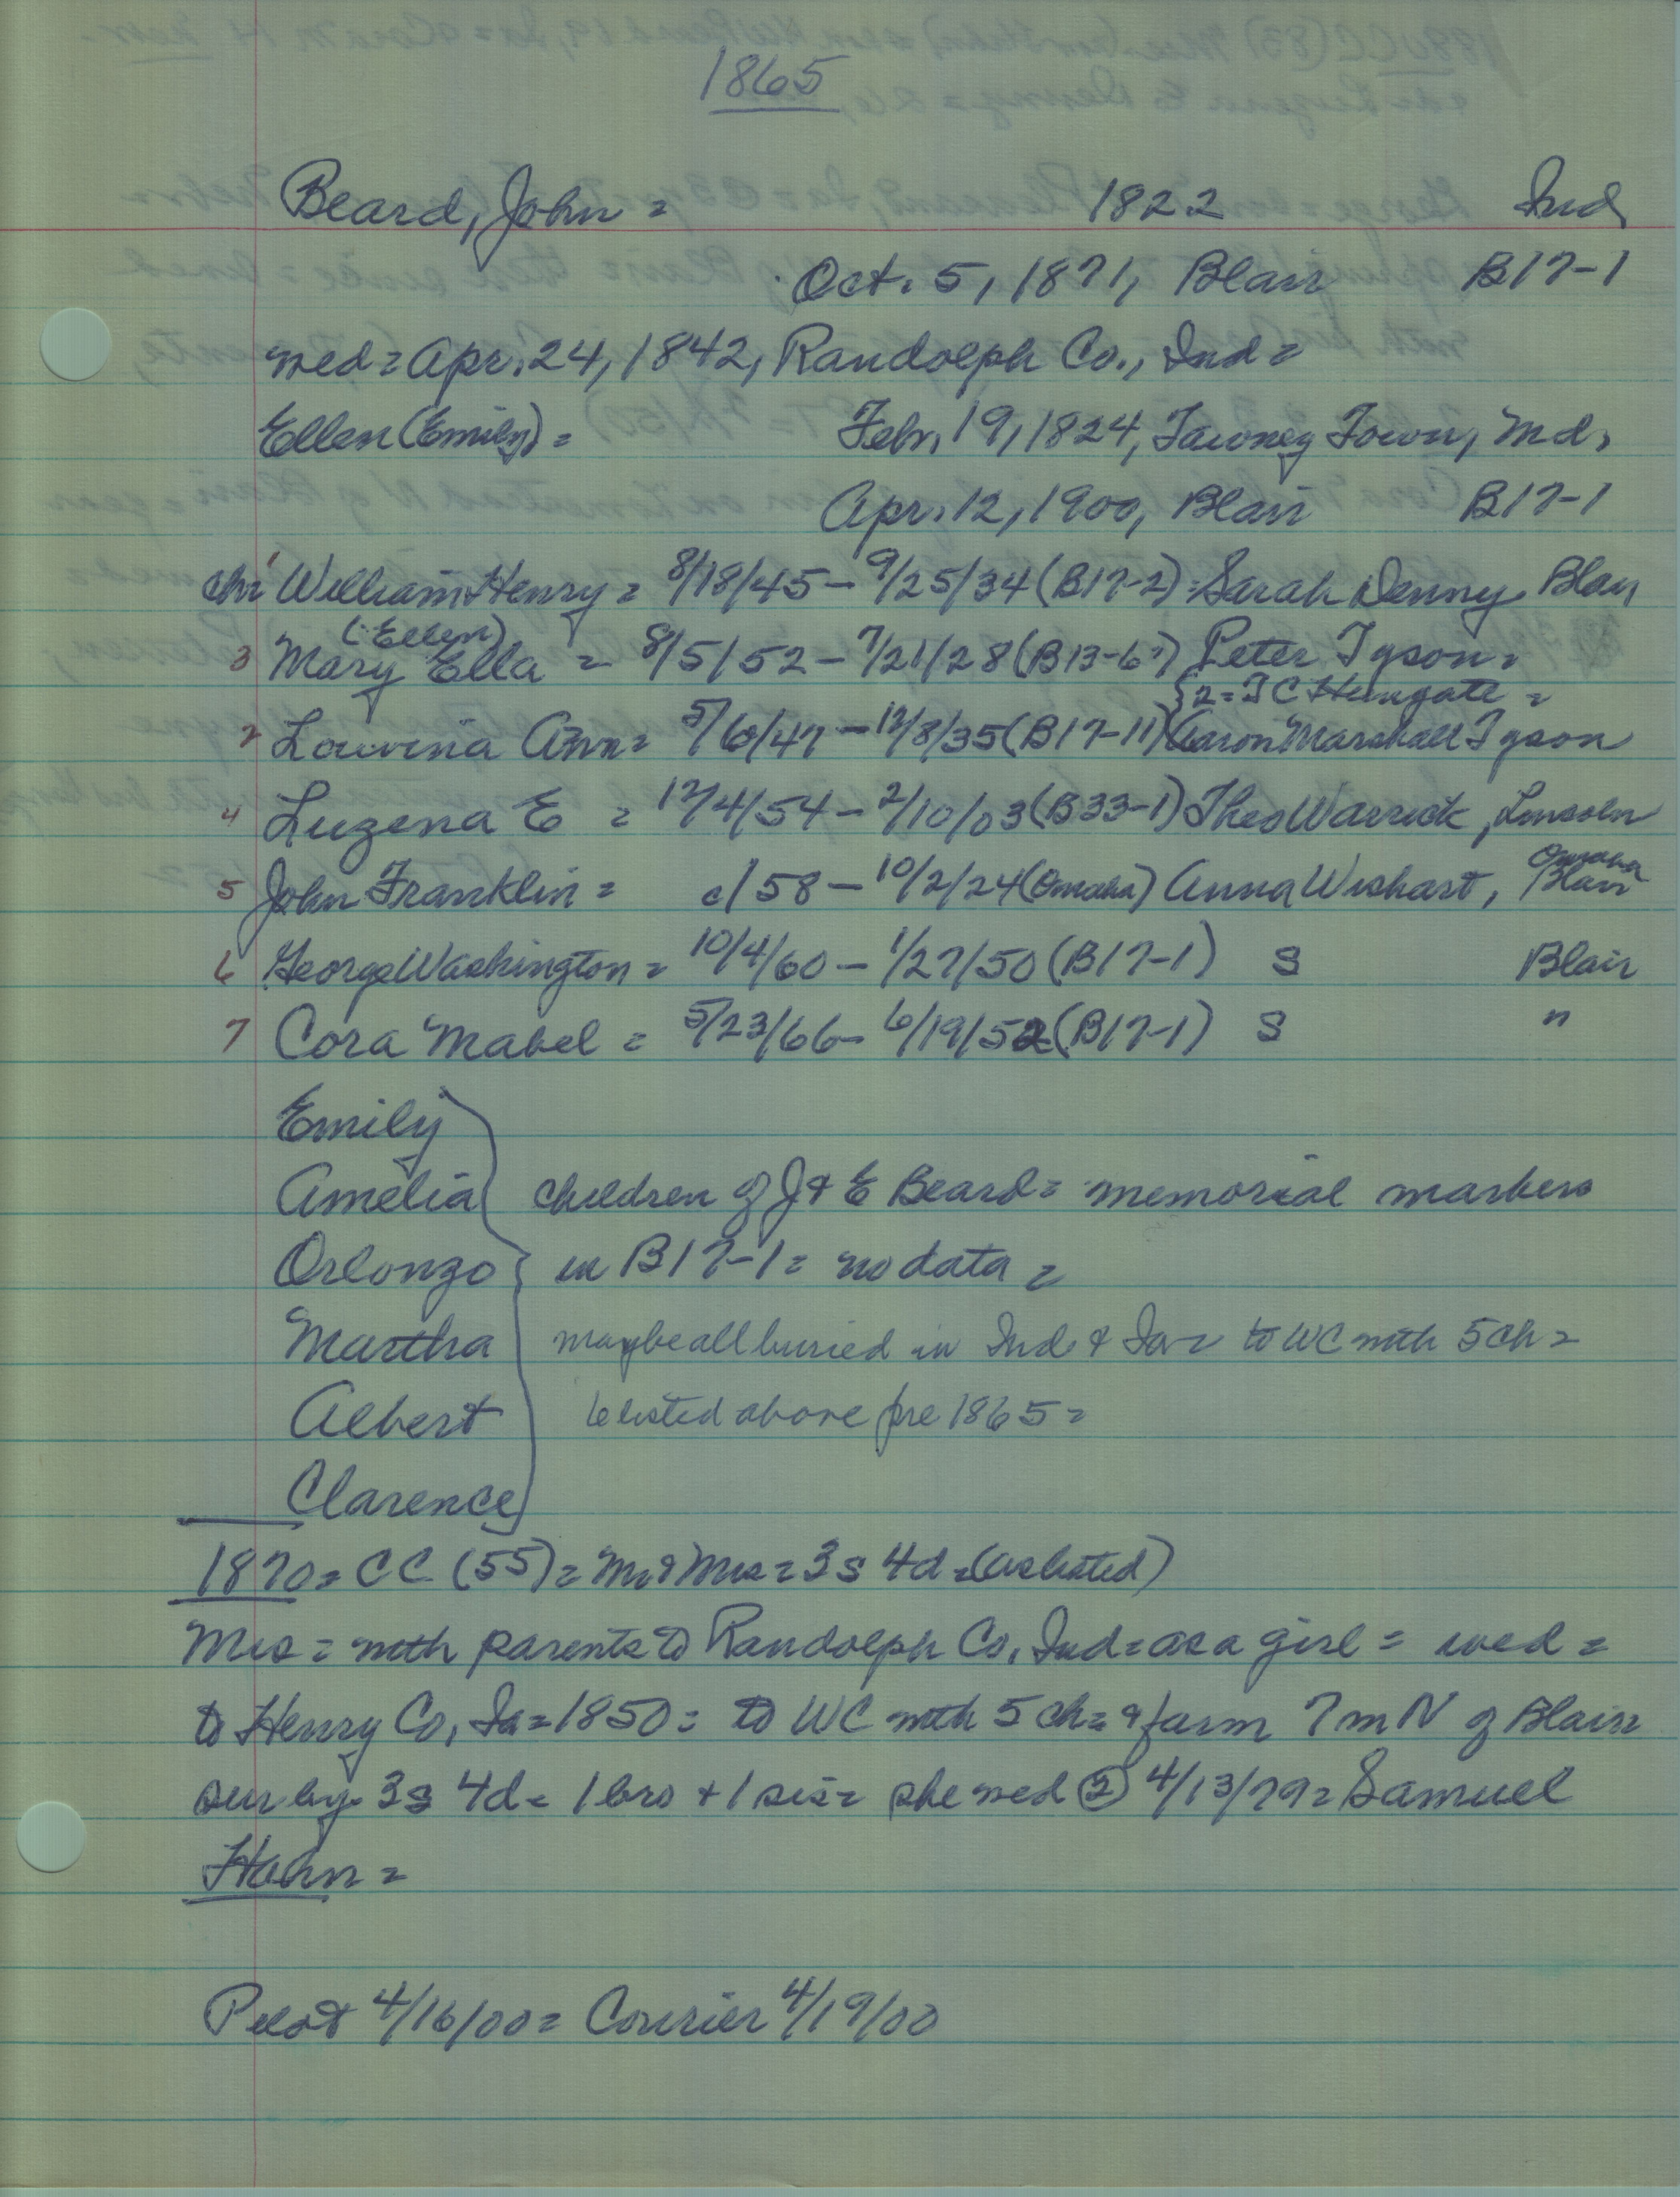 1865
Beard, John = 1822 Ind
Oct. 5, 1871, Blair B17-1
wed = Apr. 24, 1842, Randolph Co., Ind =
Ellen (Emily) = Febr. 19, 1824, Tawney Town, Md.
Apr. 12, 1900, Blair B17-1
ch: 1 William Henry = 8/18/45 - 9/25/34 (B17-2) = Sarah Denny Blair
(Ellen)
3 Mary Ella = 8/5/52 - 7/21/28 (B13-6?) Peter Tyson =
{2 = T C Hungate =
2 Louvina Ann = 5/6/47 - 12/8/35 (B17-11) Aaron Marshall Tyson
4 Luzena E = 12/4/54 - 2/10/03 (B33-1) Theo Warrick, Lincoln
Omaha
5 John Franklin = c/58 - 10/2/24 (Omaha) Anna Wishart, Blair
6 George Washington = 10/4/60 - 1/27/50 (B17-1) S Blair
7 Cora Mabel = 5/23/66 - 6/19/52 (B17-1) S "
Emily
Amelia children of J & E Beard = memorial markers
Orlonzo in B17-1 = no data =
Martha maybe all buried in Ind & Ia = to WC with 5 ch =
Albert listed above pre 1865 =
Clarence
1870 = CC (55) = Mr & Mrs = 3s 4d = (as listed)
Mrs = with parents to Randolph Co, Ind = as a girl = wed =
to Henry Co, Ia = 1850 = to WC with 5 ch = & farm 7 m N of Blair =
sur by 3s 4d = 1 bro + 1 sis = she wed (2) 4/13/79 = Samuel
Hahn =
Pilot 4/16/00 = Courier 4/19/00